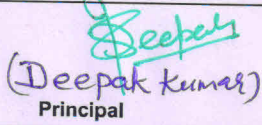 Deepak
(Deepak Kumar)
Principal